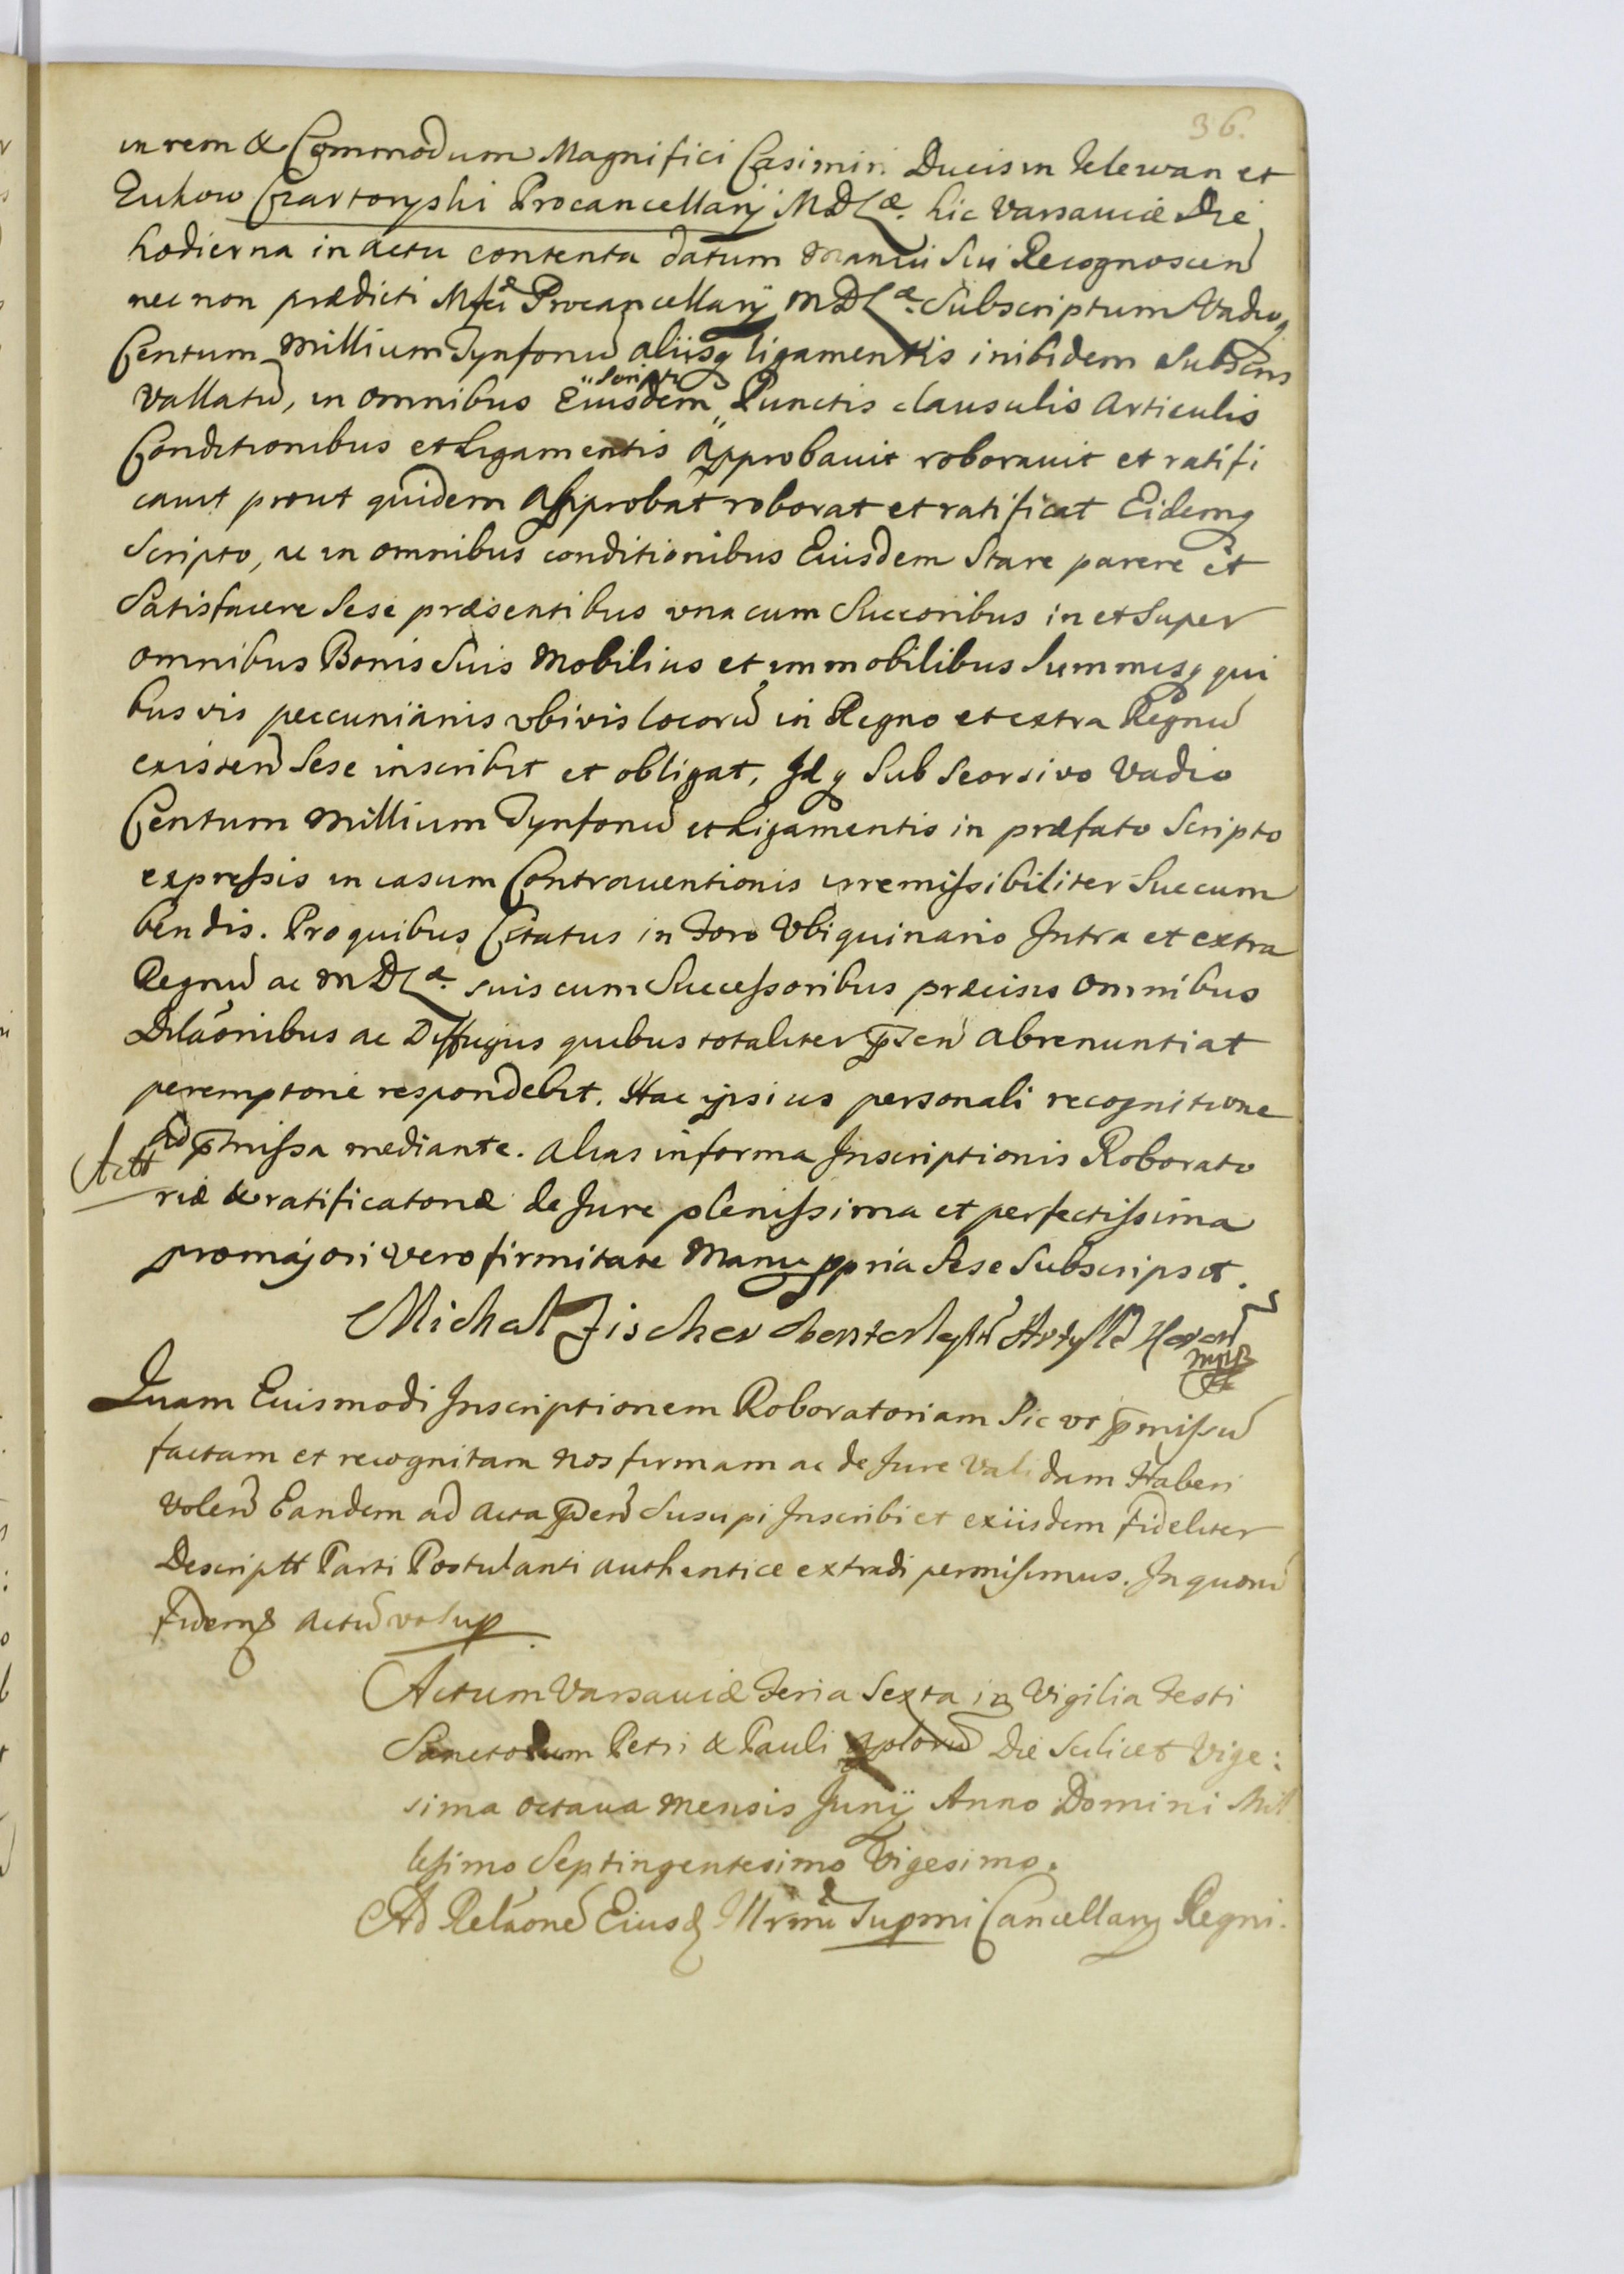 36.
in rem & Commodum Magnifici Casimiri Ducis in Klewan et
Zukow Czartoryski Procancellarij MDLæ. hic Varsaviæ Die
hodierna in actu contenta datum Manui Sui Recognoscen
nec non prædicti Mfci Procancellarij MDLæ. Subscriptum Vadioq
Centum Millium Tynfonu aliisq ligamentis inibidem Subscris
Vallatu, in omnibus Eiusdem "Scripti" Punctis clausulis Articulis
Conditionibus et Ligamentis approbauit roborauit et ratifi
cauit prout quidem Approbat roborat et ratificat Eidemq
Scripto, ac in omnibus conditionibus Eiusdem Stare parere et
Satisfacere Sese præsentibus vna cum Succoribus in et Super
omnibus Bonis Suis Mobilius et immobilibus Summisq qui
busvis peccunianis vbivis locoru in Regno et extra Regnu
existen Sese inscribit et obligat, Idq Sub Seorsivo Vadio
Centum Millium Tynfonu et Ligamentis in præfato Scripto
expressis in casum Contrauentionis irremissibiliter Succum
bendis. Pro quibus Citatus in Foro Vbiquinario Intra et extra
Regnu ac MDLæ. suis cum Successoribus præcisis omnibus
Dilaonibus ac Diffugiis quibus totaliter psen abrenuntiat
peremptorie respondebit. Hac ipsius personali recognitione
Actt
ad pmissa mediante. alias in forma Inscriptionis Roborato
riæ & ratificatoriæ de Jure plenissima et perfectissima
pro majori vero firmitate Manu ppria Sese Subscripsit.
Michał Fischer Artylle
mpp
Quam Eiusmodi Inscriptionem Roboratoriam Sic vt pmissu
factam et recognitam nos firmam ac de Jure Validam Haberi
Volen Eandem ad acta psen Suscipi Inscribi et exiisdem Fideliter
Descriptt Parti Postulanti authentice extradi permisimus. In quoru
Fidemq actu vt sup
Actum Varsaviæ Feria Sexta in Vigilia Festi
Sanctorum Petri & Pauli Aplorum Die Scilicet Vige:
sima octaua Mensis Junij Anno Domini Mil
lesimo Septingentesimo Vigesimo.
Ad Relaone Eiusd Illrmi Supmi Cancellary Regni.